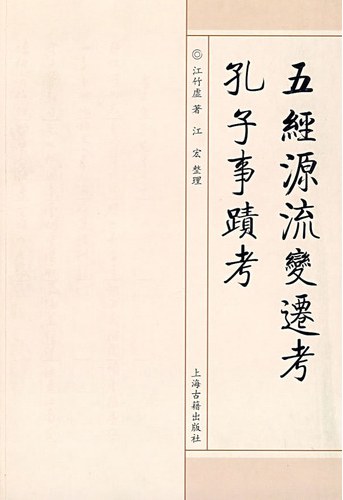 五經源流變遷考
孔子事蹟考
◎江竹虛 著 江宏 整理
上海古籍出版社